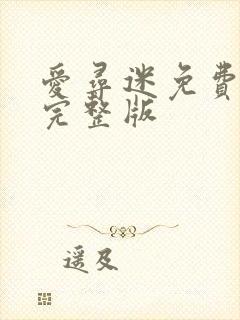 愛尋迷免費
完整版
遥及